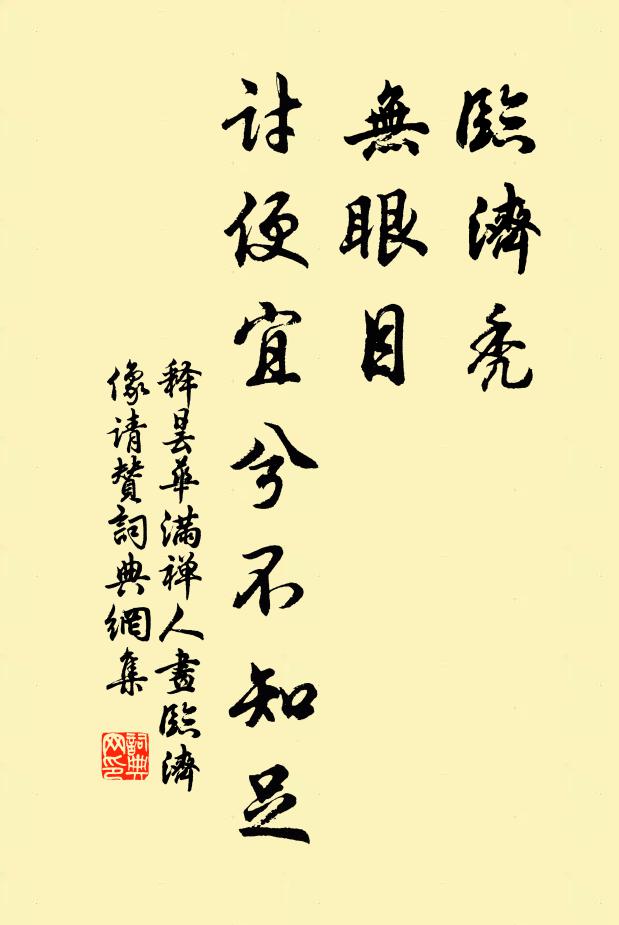 臨濟禿
無眼目
討便宜兮不知足
釋曇華滿禅人畫臨濟
像请赞詞典網集
詞典
网印